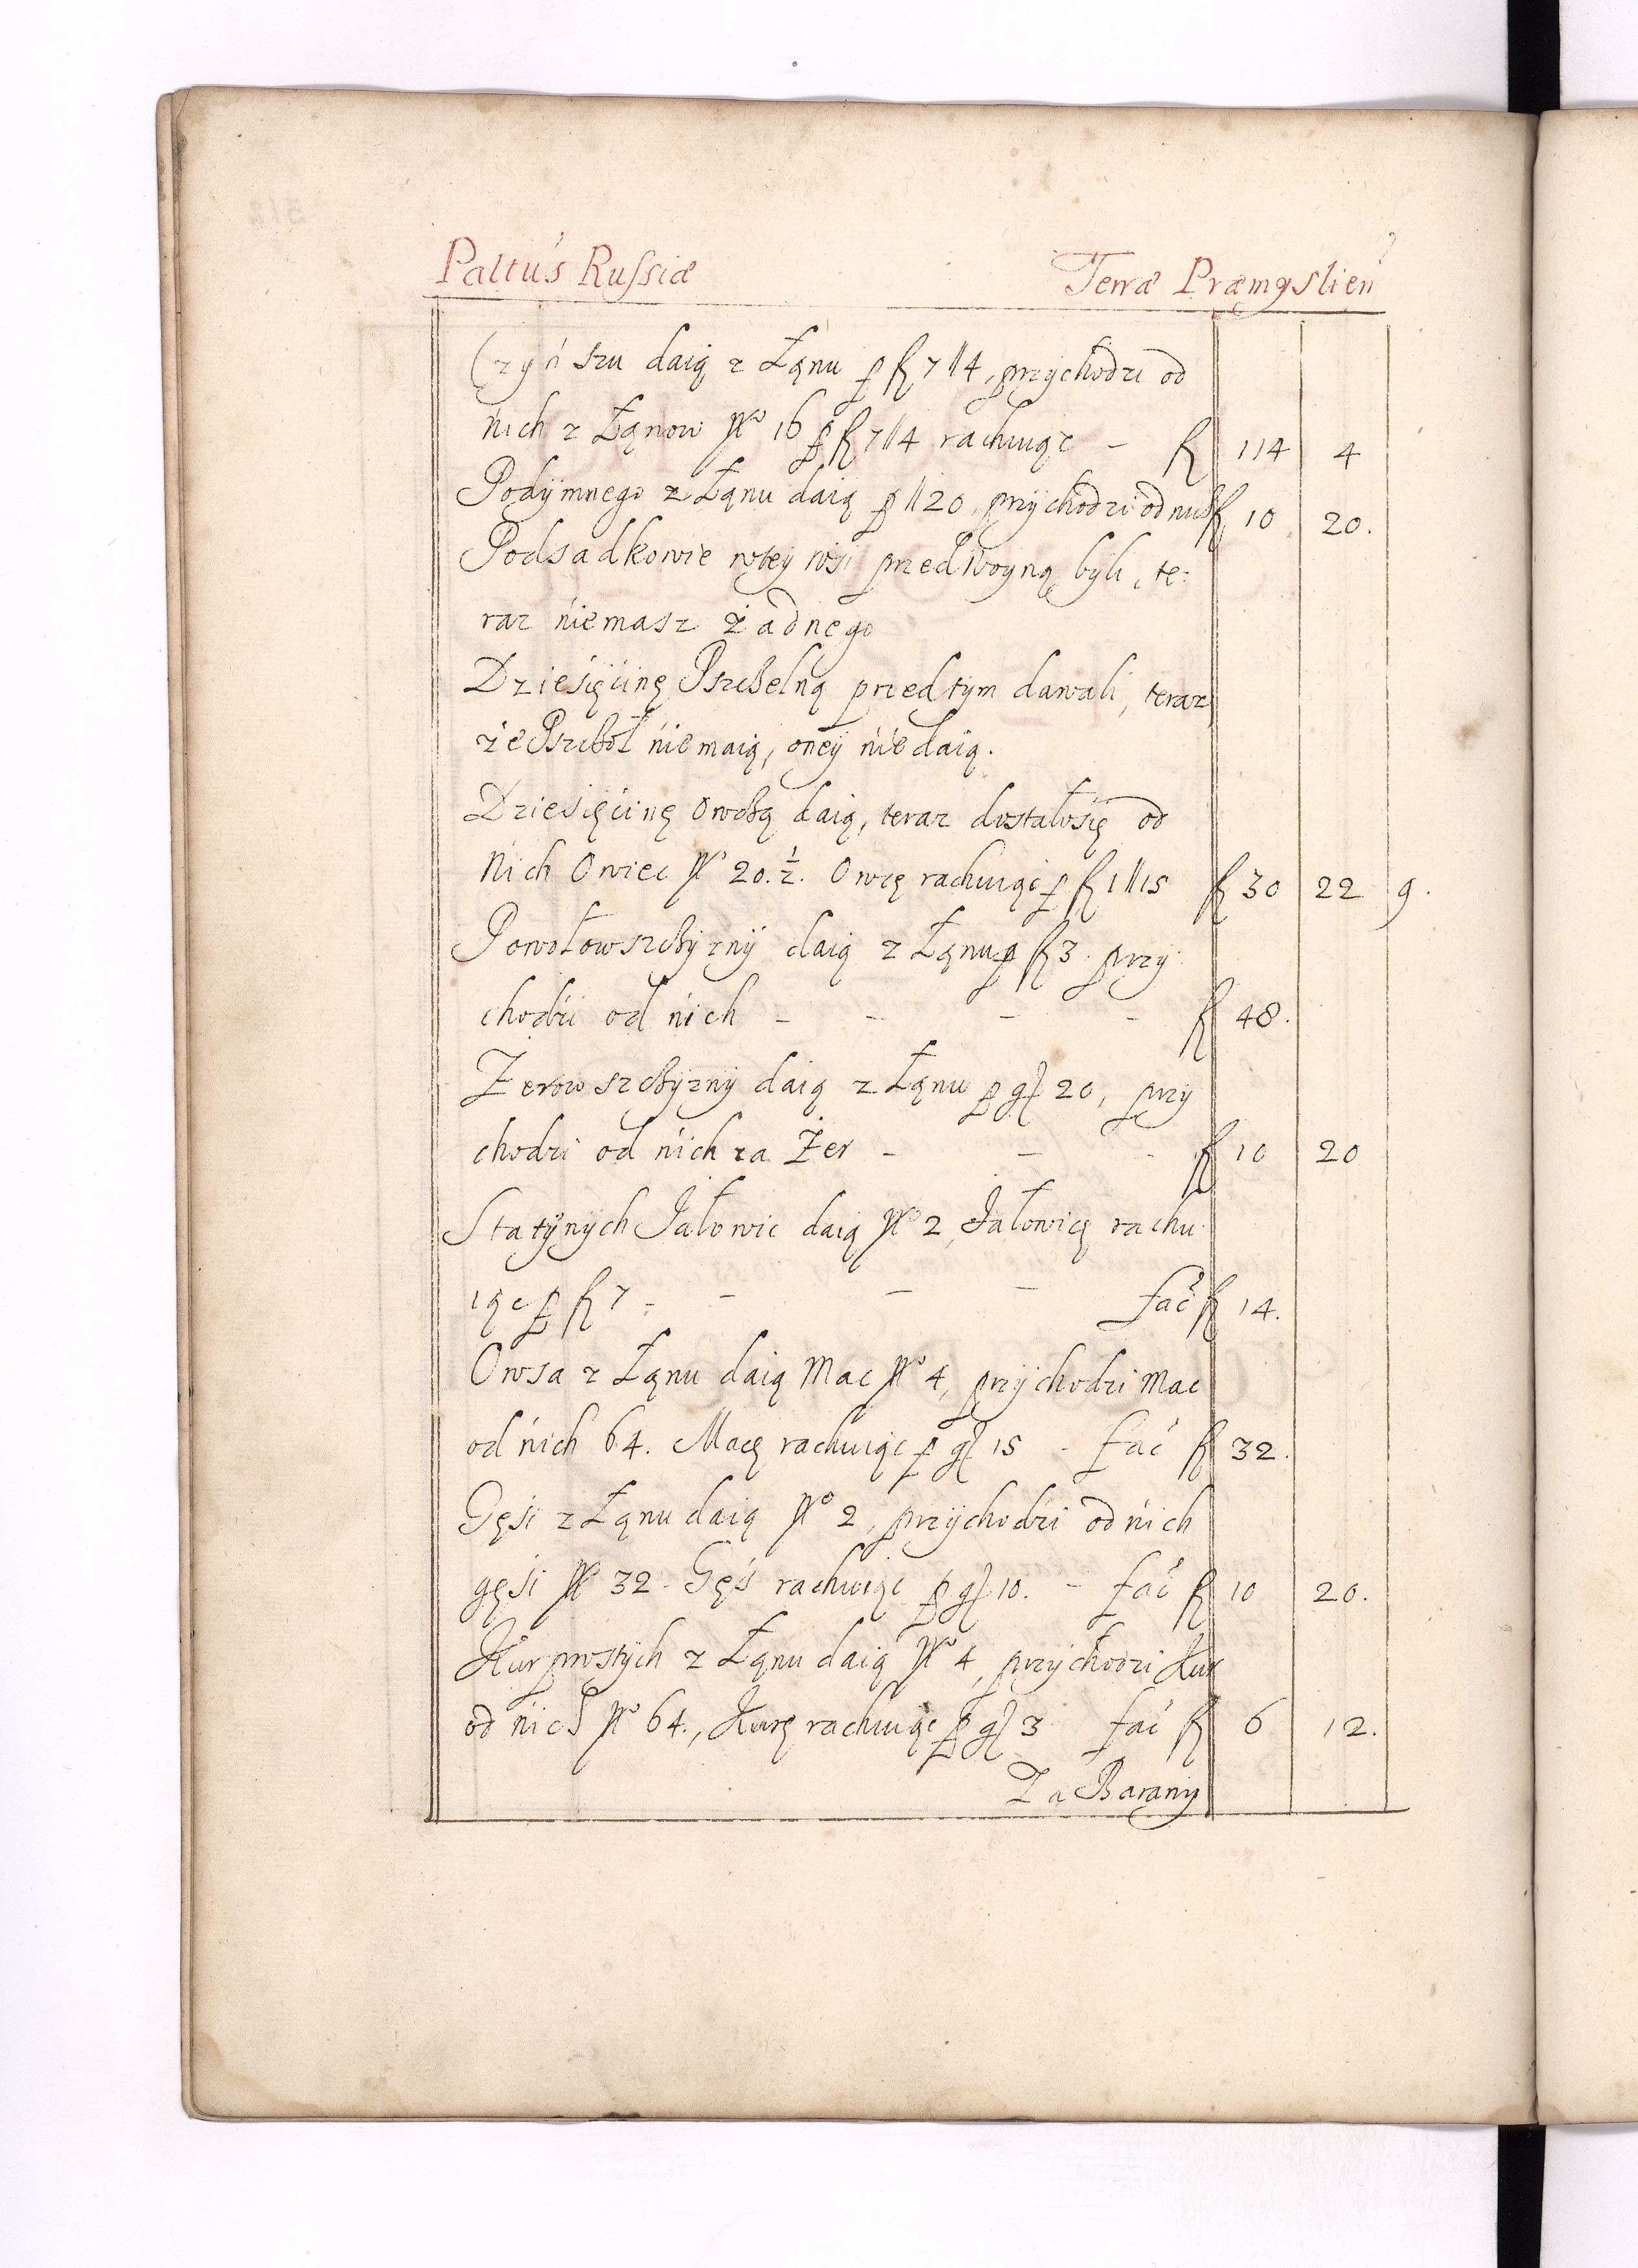 Paltus Russiæ Terræ Præmyslien
Czynszu daią z Łanu p fl 7 ‖ 4, przychodzi od
nich z Łanow No 16 p fl 7 ‖ 4 rachuiąc - fl 114 4
Podymnego z Łanu daią p ‖ 20, przychodzi od nich fl 10 20.
Podsadkowie wtey wsi przed woyną byli, te:
raz niemasz żadnego
Dziesięcinę Pszczelną przedtym dawali, teraz
że Pszczoł niemaią, oney niedaią.
Dziesięcinę Owczą daią, teraz dostałosię od
Nich Owiec No 20. ½. Owcę rachuiąc p fl 1 ‖ 15 fl 30 22 9.
Powołowszczyzny daią z Łanu p fl 3. przy
chodzi od nich - - - - fl 48.
Żerowszczyzny daią z Łanu p gl 20, przy
chodzi od nich za Żer - - - fl 10 20
Statynych Jałowic daią No 2, Jałowicę rachu
iąc p fl 7 - - - - fać fl 14.
Owsa z Łanu daią Mac No 4, przychodzi Mac
od nich 64. Macę rachuiąc p gl 15 - fać fl 32.
Gęsi z Łanu daią No 2, przychodzi od nich
gęsi No 32 - Gęś rachuiąc p gl 10. - fać fl 10 20.
Kur prostych z Łanu daią No 4, przychodzi Kur
od nich No 64., Kurę rachuiąc p gl 3 fać fl 6 12.
Za Barany